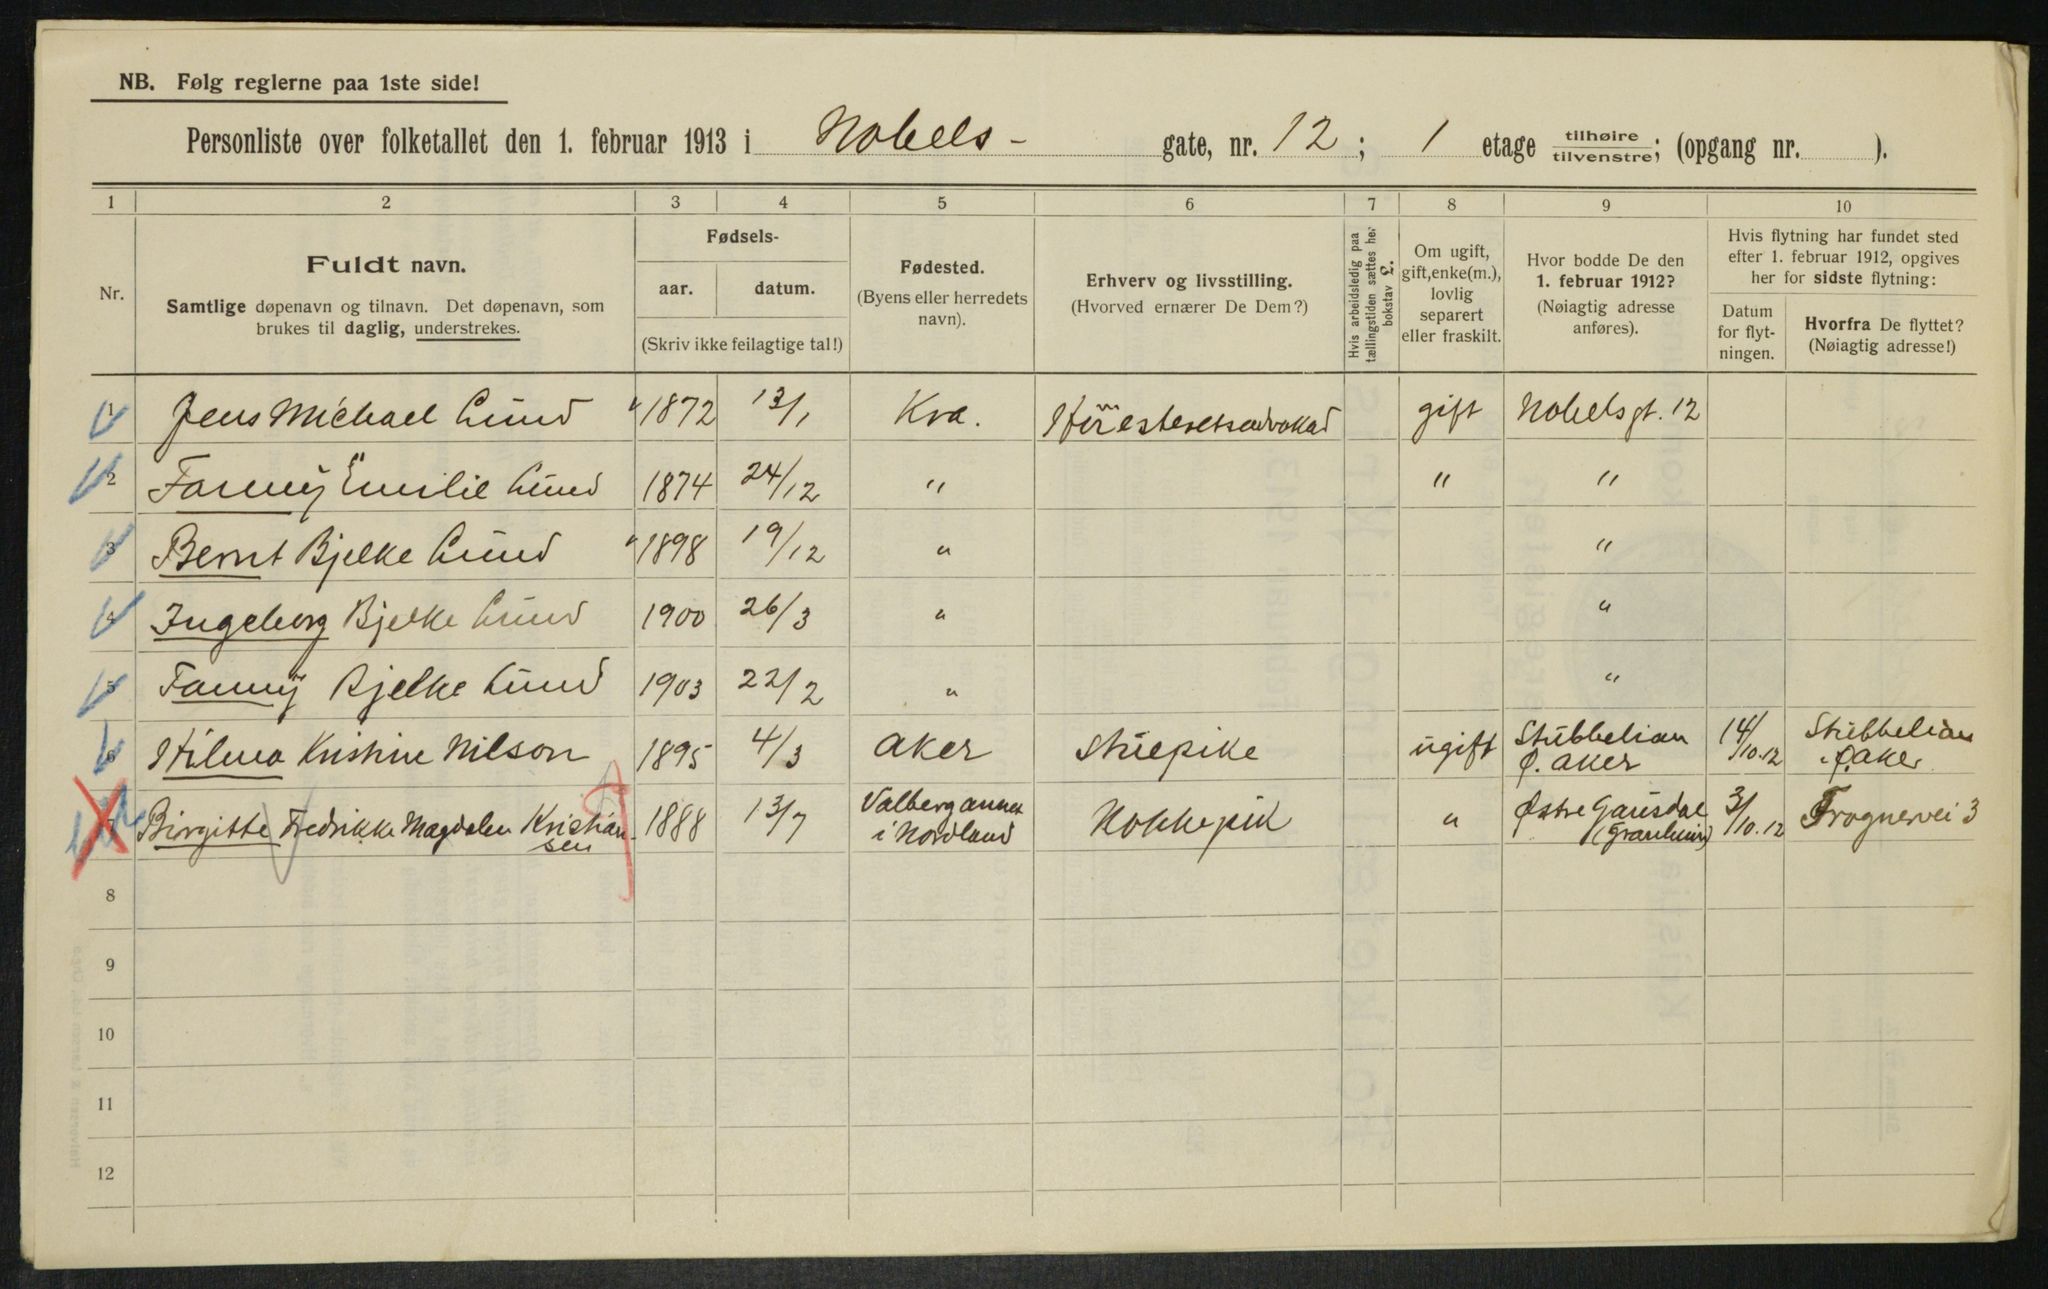 NB. Følg reglerne paa 1ste side!
Personliste over folketallet den 1. februar 1913 i Nobels- gate, nr. 12; 1 etage tilhøire/tilvenstre; (opgang nr. ).
1 2 3 4 5 6 7 8 9 10
Nr.
Fuldt navn.
Samtlige døpenavn og tilnavn. Det døpenavn, som
brukes til daglig, understrekes.
Fødsels-
aar. datum.
(Skriv ikke feilagtige tal!)
Fødested.
(Byens eller herredets
navn).
Erhverv og livsstilling.
(Hvorved ernærer De Dem?)
Hvis arbeidsledig paa
tællingstiden sættes her
bokstav L.
Om ugift,
gift, enke(m.),
lovlig
separert
eller fraskilt.
Hvor bodde De den
1. februar 1912?
(Nøiagtig adresse
anføres).
Hvis flytning har fundet sted
efter 1. februar 1912, opgives
her for sidste flytning:
Datum
for flyt-
ningen.
Hvorfra De flyttet?
(Nøiagtig adresse!)
1 Jens Michael Lund 1872 13/1 Kra. Høiesteretsadvokat gift Nobelsgt. 12
2 Fanny Emilie Lund 1874 24/12 " " "
3 Bernt Bjelke Lund 1898 19/12 " "
4 Ingeborg Bjelke Lund 1900 26/3 " "
5 Fanny Bjelke Lund 1903 22/2 " "
6 Hilma Kristine Nilson 1895 4/3 Aker Stuepike ugift Stubbelian Ø. Aker 14/10.12 Stubbelian Ø. Aker
7 Birgitte Fredrikke Magdalen Kristian-
sen 1888 13/7 Valberg annex i Nordland Kokkepik " Østre Gausdal (Granheim) 3/10.12 Frognervei 3
8
9
10
11
12